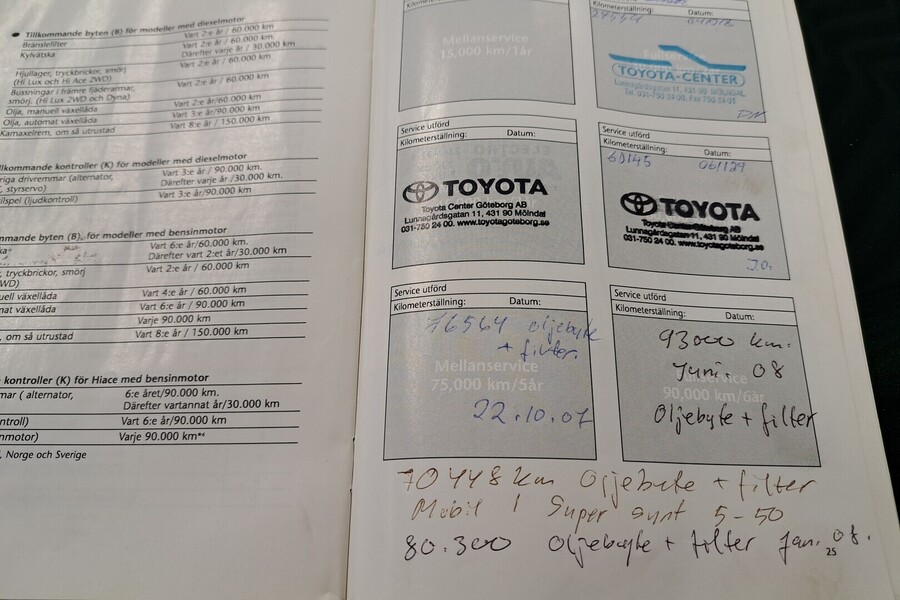 Tillkommande byten (B) för modeller med dieselmotor
Bränslefilter Vart 2:e år / 60.000 km
Kylvätska Därefter varje år / 30.000 km
Vart 2:e år / 60.000 km
Hjullager, tryckbrickor, smörj
(Hi Lux och Hi Ace 2WD) Vart 2:e år / 60.000 km
Bussningar i främre fjäderarmar,
smörj. (Hi Lux 2WD och Dyna) Vart 2:e år / 60.000 km
Olja, manuell växellåda Vart 2:e år/60.000 km
Olja, automat växellåda Vart 3:e år/90.000 km
Kamaxelrem, om så utrustad Vart 8:e år / 150.000 km
llkommande kontroller (K) för modeller med dieselmotor
riga drivremmar (alternator, Vart 3:e år / 90.000 km.
, styrservo) Därefter varje år /30.000 km.
ilspel (ljudkontroll) Vart 3:e år/90.000 km
mmande byten (B), för modeller med bensinmotor
ka Vart 6:e år/60.000 km.
Därefter vart 2:et år/30.000 km
, tryckbrickor, smörj Vart 2:e år / 60.000 km
WD)
uell växellåda Vart 4:e år / 60.000 km
mat växellåda Vart 6:e år / 90.000 km
Varje 90.000 km
, om så utrustad Vart 8:e år / 150.000 km
kontroller (K) för Hiace med bensinmotor
mar ( alternator, 6:e året/90.000 km.
Därefter vartannat år/30.000 km
ntroll) Vart 6:e år/90.000 km
nmotor) Varje 90.000 km*⁴
, Norge och Sverige
Mellanservice
15,000 km/1år
Kilometerställning: Datum:
TOYOTA-CENTER
Lunnagårdsgatan 11, 431 90 MÖLNDAL
Service utförd
Kilometerställning: Datum:
TOYOTA
Toyota Center Göteborg AB
Lunnagårdsgatan 11, 431 90 Mölndal
031-750 24 00. www.toyotagoteborg.se
Service utförd
Kilometerställning: Datum:
60145 061129
TOYOTA
Toyota Center Göteborg AB
Lunnagårdsgatan 11, 431 90 Mölndal
031-750 24 00. www.toyotagoteborg.se
J.O.
Service utförd
Kilometerställning: Datum:
76564 oljebyte
+ filter.
Mellanservice
75,000 km/5år
22.10.07
Service utförd
Kilometerställning: Datum:
93000 km.
Juni. 08
90,000 km/6år
Oljebyte + filter
70448 km Oljebyte + filter
Mobil 1 Super synt 5-50
80.300 Oljebyte + filter Jan. 08.
25